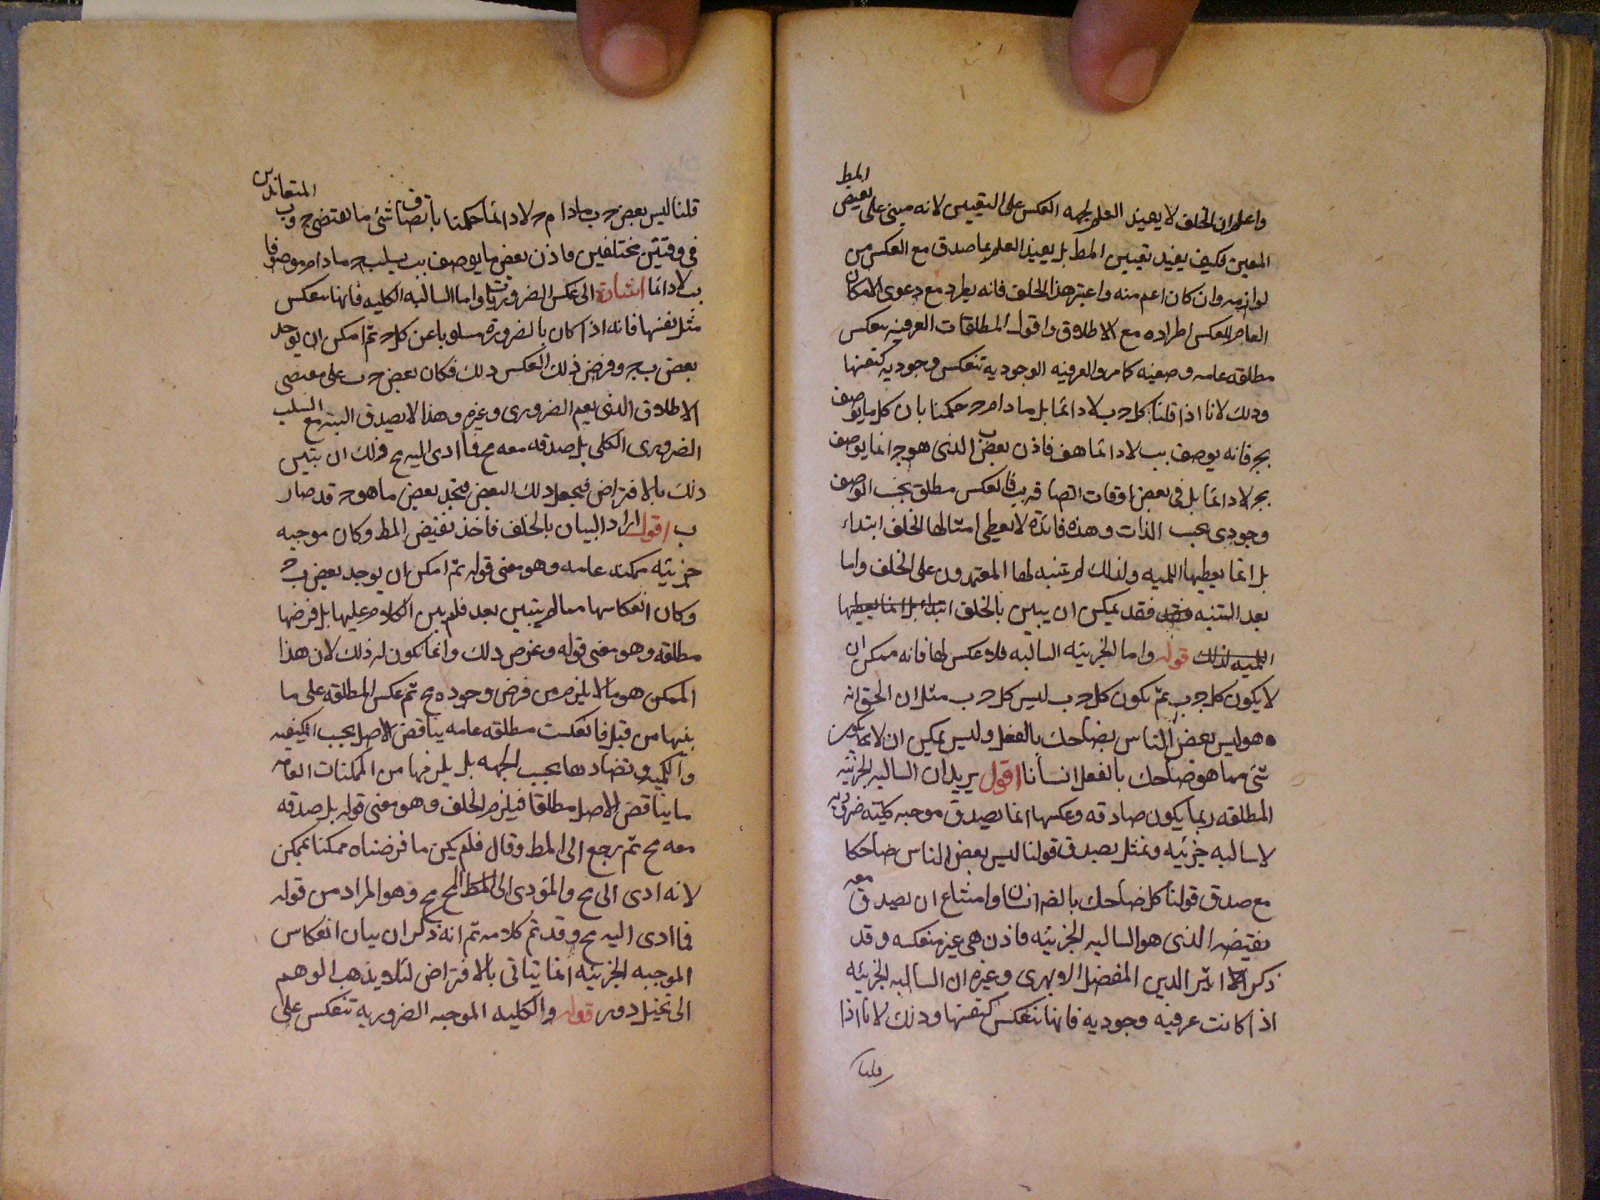 واعلم ان الخلف لا يفيد العلم بجهه العكس على التعيين لانه مبنى على نقيض المط
المعين فكيف يفيد تعيين المط بل يفيد العلم بما صدق مع العكس من
لوازمه وان كان اعم منه واعتبر هذا الخلف فانه يطرد مع دعوى الامكان
العام للعكس اطراده مع الاطلاق واقول المطلقات العرفيه ينعكس
مطلقه عامه وصفيه كما مر والعرفيه الوجوديه تنعكس وجوديه كنفسها
وذلك لانا اذا قلنا كل ج ب لا دائما بل ما دام ج حكمنا بان كل ما يوصف
بج فانه يوصف بب لا دائما فاذن بعض ب الذى هو ج انما يوصف
بج لا دائما بل فى بعض اوقات اتصافه بب فالعكس مطلق بحسب الوصف
وجودى بحسب الذات وهذه فائدة لا يعطى امثالها الخلف ابتداء
بل انما يعطيها اللميه ولذلك لم يتنبه لها المعتمدون على الخلف واما
بعد التنبه فقد يمكن ان يبين بالخلف ابتداء بل انما يعطيها
اللميه لذلك قوله واما الجزئيه السالبه فلا عكس لها فانه ممكن ان
لا يكون كل ج ب ثم يكون كل ب ج ليس كل ج ب مثل ان الحق انه
هو ليس بعض الناس بضاحك بالفعل وليس يمكن ان لا يكون
شئ مما هو ضاحك بالفعل انسانا اقول يريد ان السالبه الجزئيه
المطلقه ربما يكون صادقه وعكسها انما يصدق موجبه كليته ضروريه
لا سالبه جزئيه وتمثل بصدق قولنا ليس بعض الناس ضاحكا
مع صدق قولنا كل ضاحك بالضم انسان وامتناع ان يصدق معه
نقيضه الذى هو السالبه الجزئيه فاذن هى غير منعكسه وقد
ذكر اثير الدين المفضل الابهرى وغيره ان السالبه الجزئيه
اذا كانت عرفيه وجوديه فانها تنعكس كنفسها وذلك لانا اذا
قلنا
قلنا ليس بعض ج ب ما دام ج لا دائما حكمنا باتصاف شئ ما بقتضى ج وب المتعاندين
فى وقتين مختلفين فاذن بعض ما يوصف بب يسلب ج ما دام موصوفا
بب لا دائما اشارة الى عكس الضروريات واما السالبه الكليه فانها تنعكس
مثل نفسها فانه اذا كان بالضرورة مسلوبا عن كل ج ثم امكن ان يوجد
بعض ب ج وفرض ذلك انعكس ذلك فكان بعض ج ب على مقتضى
الاطلاق الذى يعم الضرورى وغيره وهذا لا يصدق البته مع السلب
الضرورى الكلى بل صدقه معه مح فما ادى اليه مح ولك ان تبين
ذلك بالافتراض فيجعل ذلك البعض فتجد بعض ما هو ج قد صار
ب اقول اراد البيان بالخلف فاخذ نقيض المط وكان موجبه
جزئيه ممكنه عامه وهو معنى قوله ثم امكن ان يوجد بعض ب ج
وكان انعكاسها مما لم يتبين بعد فلم يبن الكلام عليها بل فرضها
مطلقه وهو معنى قوله وفرض ذلك وانما يكون له ذلك لان هذا
الممكن هو ما لا يلزم من فرض وجوده مح ثم عكس المطلقه على ما
بينها من قبل فانعكست مطلقه عامه يناقض الاصل بحسب الكيفيه
والكميه وتضادها بحسب الجهه بل يلزمها من الممكنات العامه
ما يناقض الاصل مطلقا فيلزم الخلف وهو معنى قوله بل صدقه
معه مح ثم رجع الى المط وقال فلم يكن ما فرضناه ممكنا بممكن
لانه ادى الى مح والمؤدى الى المح مح وهو المراد من قوله
فما ادى اليه مح وقد تم كلامه ثم انه ذكر ان بيان انعكاس
الموجبه الجزئيه انما يتاتى بالافتراض لئلا يذهب الوهم
الى تخيل دور قوله والكليه الموجبه الضروريه تنعكس على